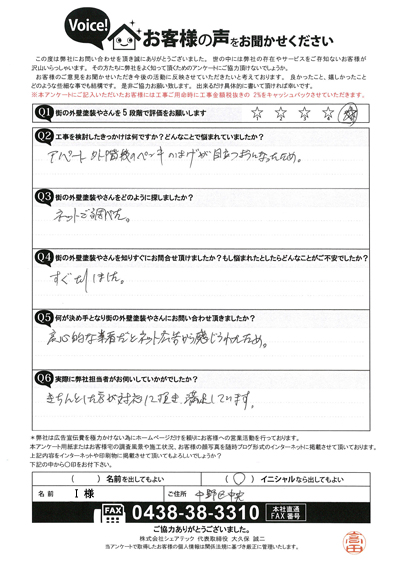 Voice!
お客様の声をお聞かせください
この度は弊社にお問い合わせを頂き誠にありがとうございました。世の中には弊社の存在やサービスをご存知ないお客様が
沢山いらっしゃいます。その方たちに弊社をよく知って頂くためのアンケートにご協力頂けないでしょうか。
お客様のご意見をお聞かせいただき今後の活動に反映させていただきたいと考えております。良かったこと、嬉しかったこと
どのような些細な事でも結構です。是非ご協力お願い致します。出来るだけ具体的に書いて頂ければ幸いです。
※本アンケートにご記入いただいたお客様には工事ご用命時に工事金額税抜きの2%をキャッシュバックさせていただきます。
Q1 街の外壁塗装やさんを5段階で評価をお願いします ☆ ☆ ☆ ☆ ☆
Q2 工事を検討したきっかけは何ですか?どんなことで悩まれていましたか?
アパート外階段のペンキのはげが目立つようになったため。
Q3 街の外壁塗装やさんをどのように探しましたか?
ネットで調べた。
Q4 街の外壁塗装やさんを知りすぐにお問合せ頂けましたか?もし悩まれたとしたらどんなことがご不安でしたか?
すぐTELしました。
Q5 何が決め手となり街の外壁塗装やさんにお問い合わせ頂きましたか?
良心的な業者だとネット広告から感じられたため。
Q6 実際に弊社担当者がお伺いしていかがでしたか?
きちんとした方が対応して頂き満足しています。
*弊社は広告宣伝費を極力かけない為にホームページだけを頼りにお客様への営業活動を行っております。
本アンケート用紙またはお客様宅の調査風景や施工状況、お客様の顔写真を随時ブログ形式のインターネットに掲載させて頂いております。
上記内容をインターネットや印刷物に掲載させて頂いてもよろしいでしょうか?
下記の中から〇印をお付下さい。
( )名前を出してもよい (〇)イニシャルなら出してもよい
名前 I 様 ご住所 中野区中央
FAX 0438-38-3310 本社直通 FAX番号
ご協力ありがとうございました。
株式会社シェアテック 代表取締役 大久保 誠二
当アンケートで取得したお客様の個人情報は関係法規に基づき厳正に管理いたします。